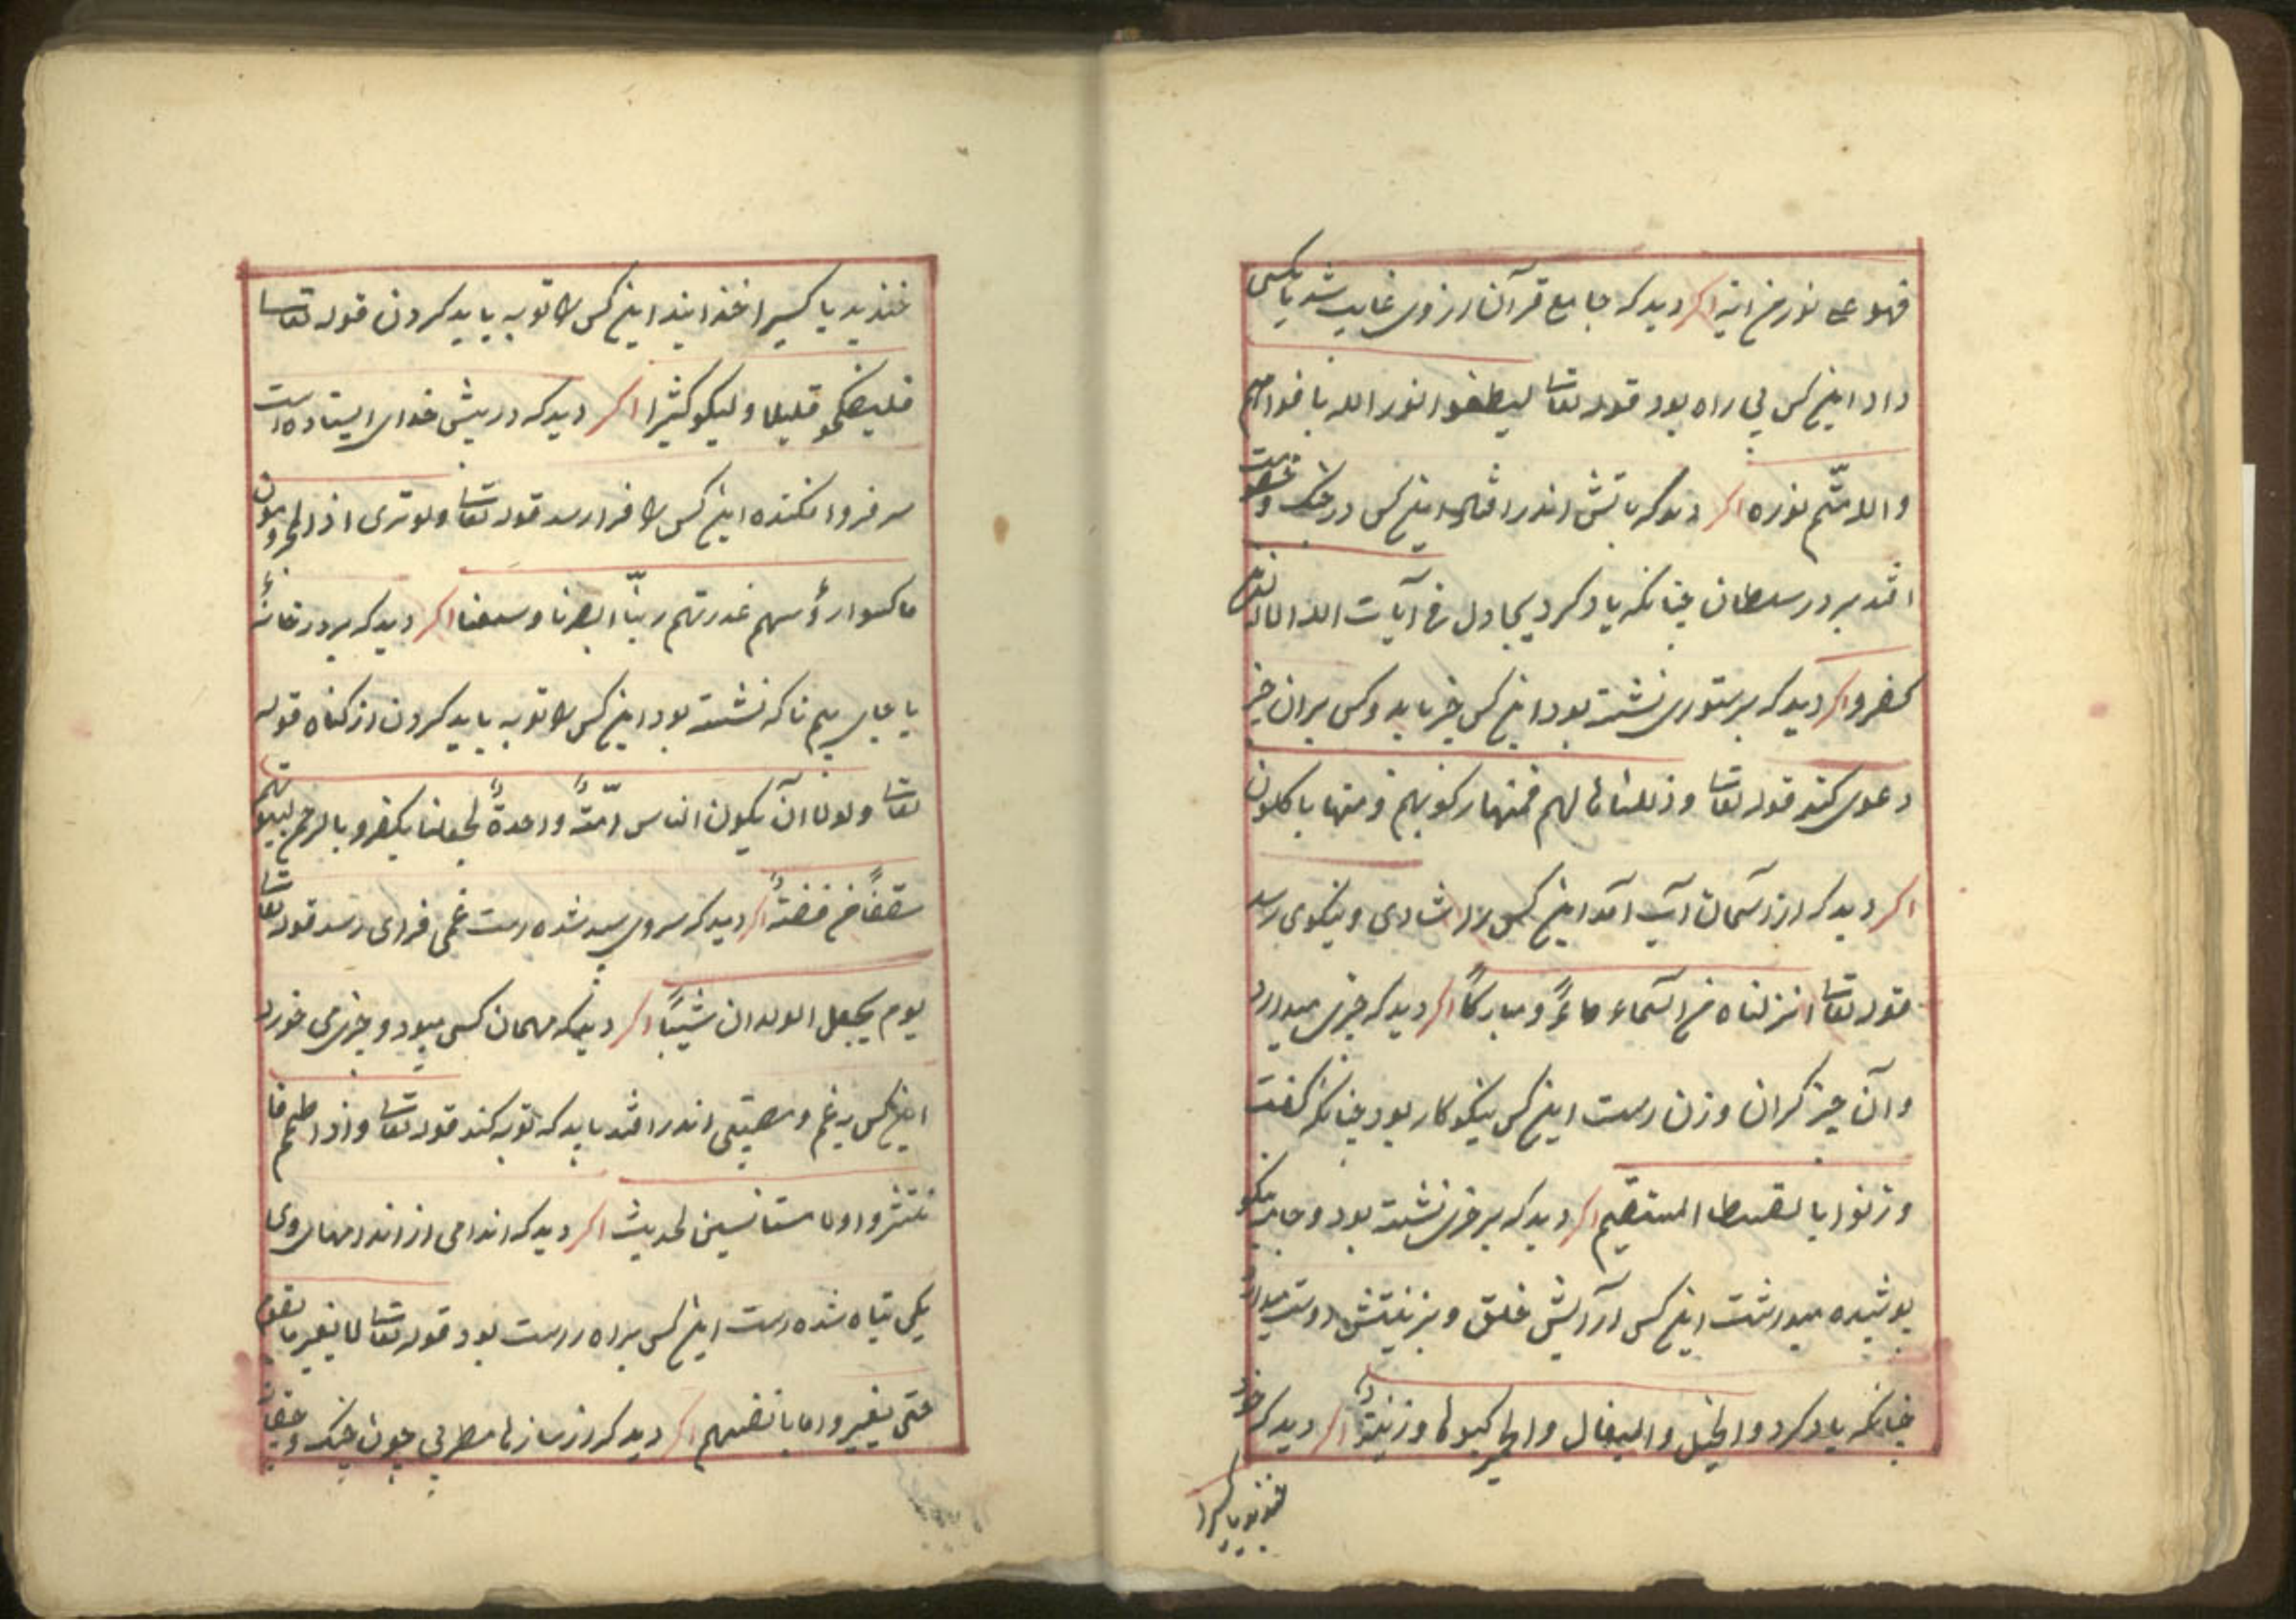 فهو علی نور من ربه اکر دید که جامع قرآن از وی غایب شد یا بکسی
داد این کس بی راه بود قوله تعا لیطفئوا نور الله بافواههم
والله متم نوره اکر دید که باتش اندر افتد این کس در جنک و خصومت
افتد بر در سلطان چنانکه یاد کرد یجادل فی آیات الله الا الذین
کفروا اکر دید که بر ستوری نشسته بود این کس خر یابد و کس بران خر
دعوی کند قوله تعا وذللناها لهم فمنها رکوبهم ومنها یاکلون
اکر دید که از آسمان آب آمد این کس را شادی و نیکوی رسد
قوله تعا انزلناه من السماء ماءً ومبارکاً اکر دید که چیزی میدارد
وآن چیز کران وزن است این کس نیکو کار بود چنانکه کفت
وزنوا بالقسط المستقیم اکر دید که بر خری نشسته بود و جامه نیکو
پوشیده میداشت این کس آرایش خلق و بزینتش دوست میدارد
چنانکه یاد کرد والخیل والبغال والحمیر لترکبوها وزینةً اکر دید که خود
خندید یا کسیرا
خندید یا کسیرا خندانید این کس را توبه باید کردن قوله تعا
فلیضحکوا قلیلا ولیبکو کثیرا اکر دید که در پیش خدای ایستاده است
سر فرو افکنده این کس را فرا رسد قوله تعا ولو تری اذ المجرمون
ناکسوا رؤسهم عند ربهم ربّنا ابصرنا وسمعنا اکر دید که بر در خانهٔ
یا جای سیم ناک نشسته بود این کس را توبه باید کردن از کناه قوله
تعا ولولا آن یکون الناس امّةً واحدةً لجعلنا یکفرو بالرحمن لبیوتهم
سقفاً من فضةً اکر دید که سروی سپید شده است غمی فرای رسد قوله تعا
یوم یجعل الولدان شیباً اکر دید که مهمان کسی میبود و چیزی می خورد
این کس به غم و مصیبتی اندر افتد باید که توبه کند قوله تعا واذا طعمتم فا
نتشروا ولا مستانسین لحدیث اکر دید که اندامی از اندامهای وی
یکی تباه شده است این کس براه راست بود قوله تعا لا یغیر ما بقوم
حتی یغیروا ما بانفسهم اکر دید که از سازها مطربی چون چنک و